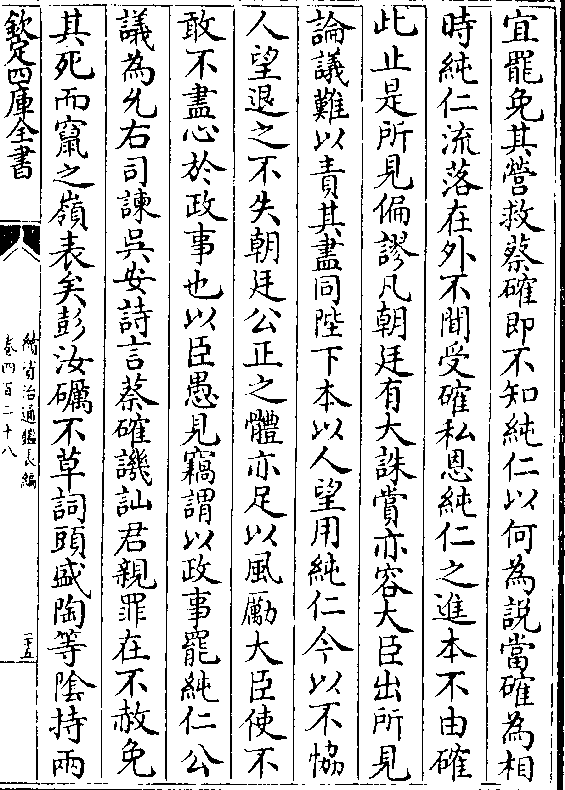 宜罷免其營救蔡確即不知純仁以何為說當確為相
時純仁流落在外不聞受確私恩純仁之進本不由確
此止是所見偏謬凡朝廷有大誅賞亦容大臣出所見
論議難以責其盡同陛下本以人望用純仁今以不恊
人望退之不失朝廷公正之體亦足以風勵大臣使不
敢不盡心於政事也以臣愚見竊謂以政事罷純仁公
議為允右司諫吳安詩言蔡確譏訕君親罪在不赦免
其死而竄之嶺表矣彭汝礪不草詞頭盛陶等陰持兩
欽定四庫全書
續資治通鑑長編
卷四百二十八
二十五